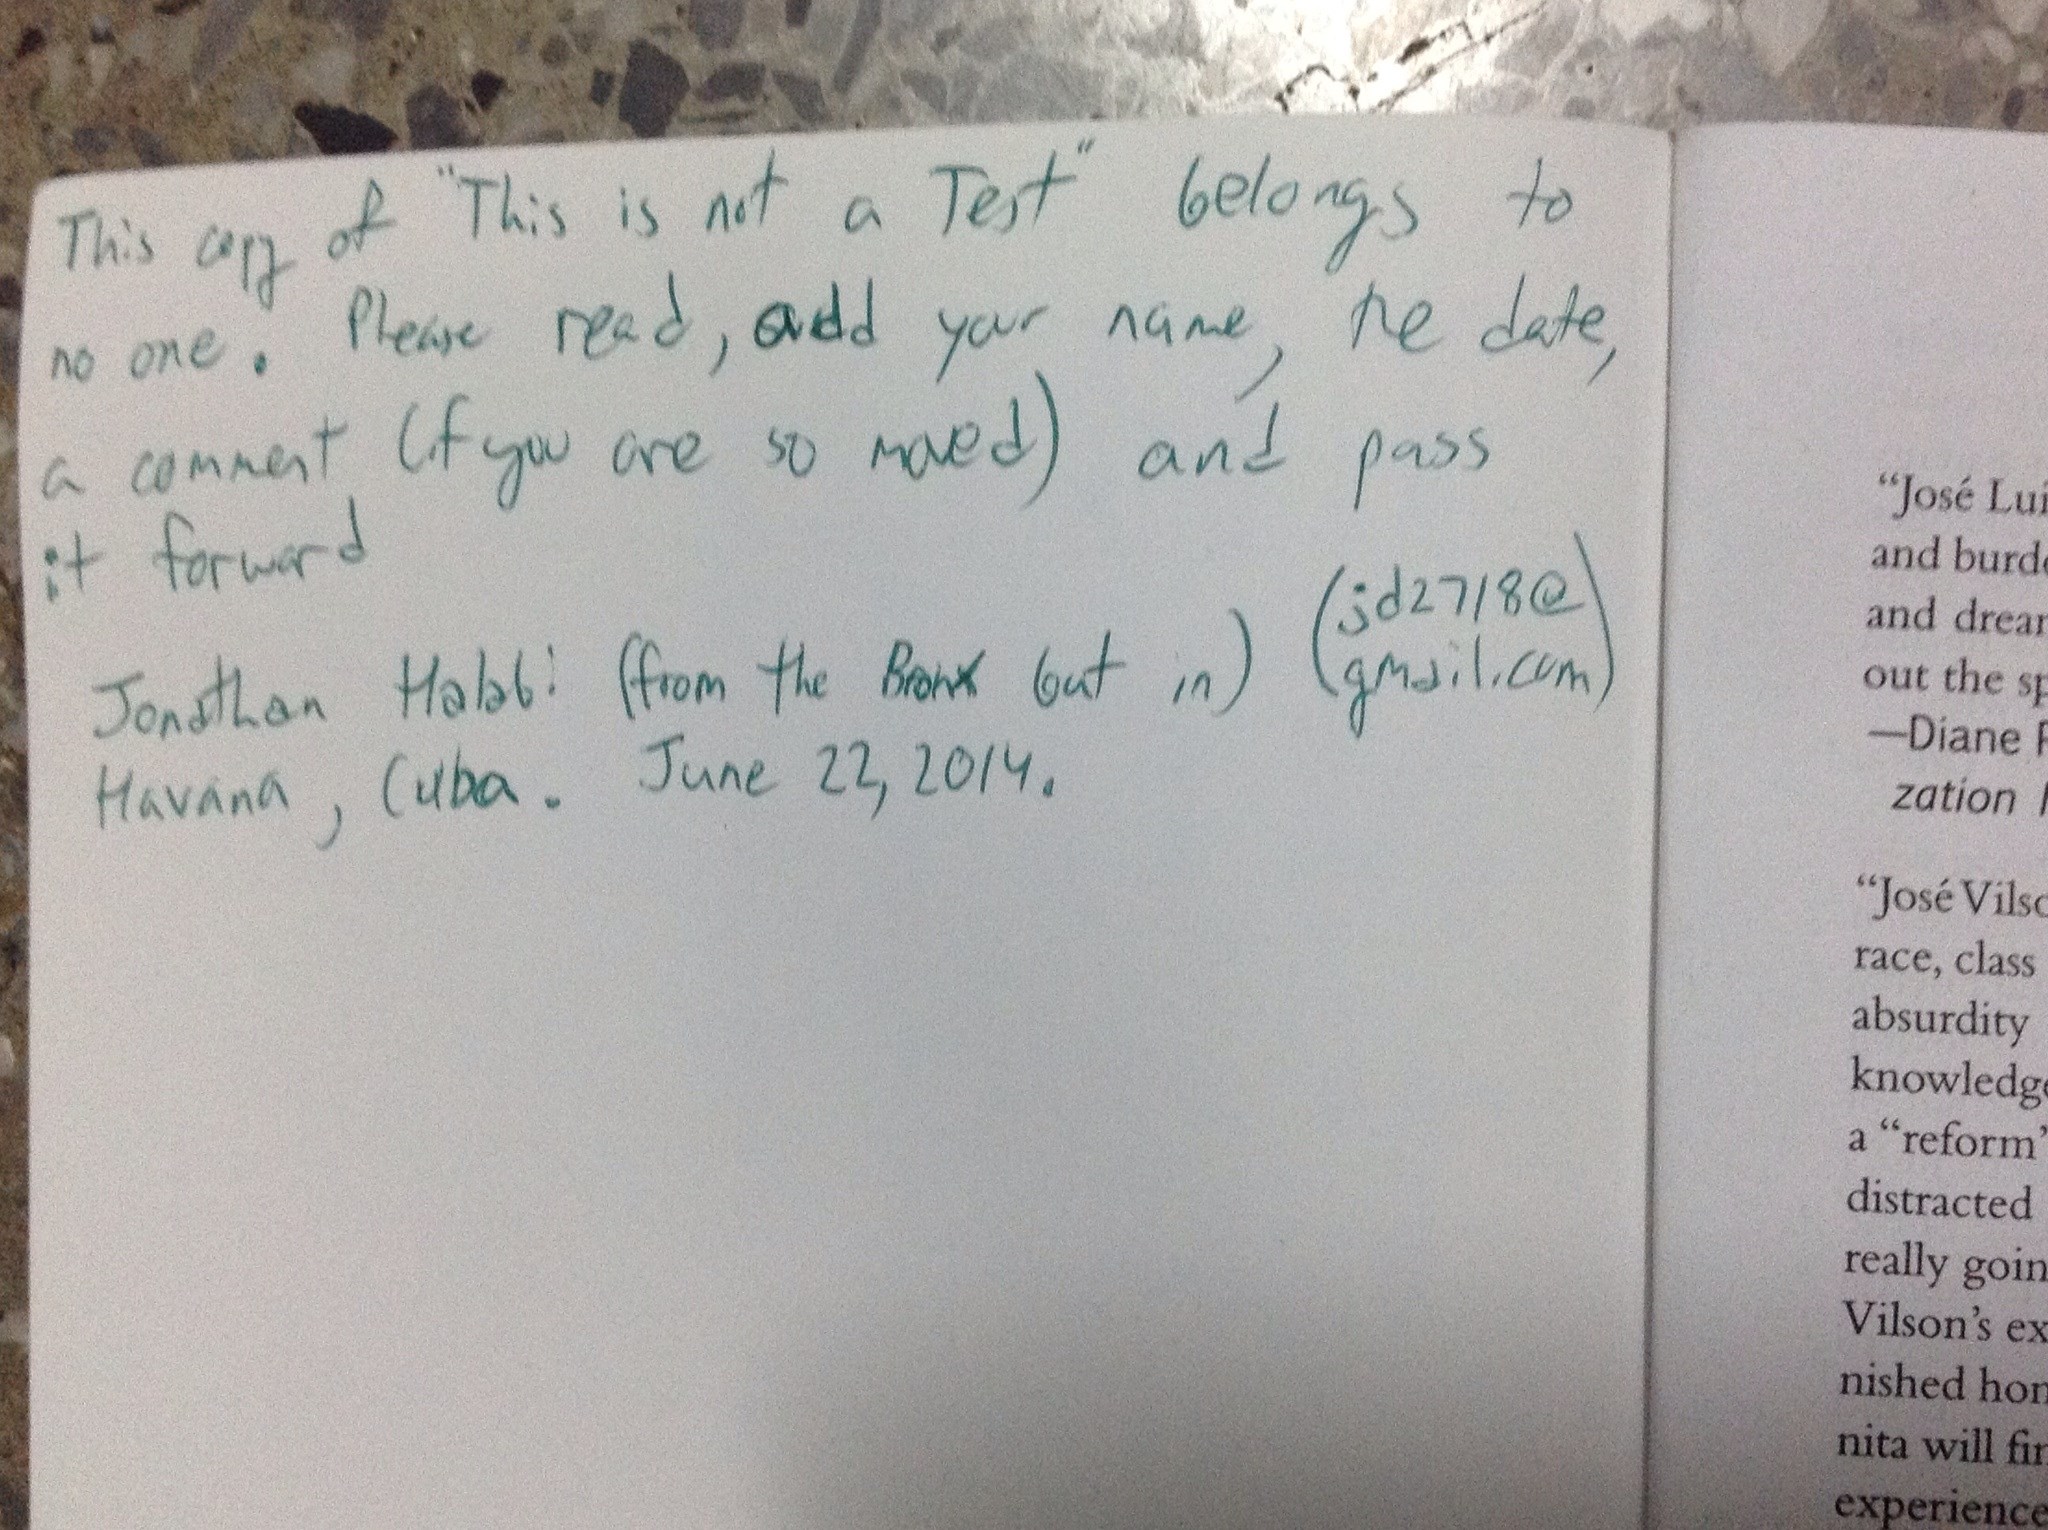 This copy of "This is not a Test" belongs to
no one. Please read, add your name, the date,
a comment (if you are so moved) and pass
it forward
Jonathan Halabi (from the Bronx but in) (jd2718@
gmail.com)
Havana, Cuba. June 22, 2014.
"José Lui
and burd
and drea
out the sp
—Diane R
zation
"José Vilso
race, class
absurdity
knowledge
a "reform"
distracted
really goin
Vilson's ex
nished hon
nita will fin
experience